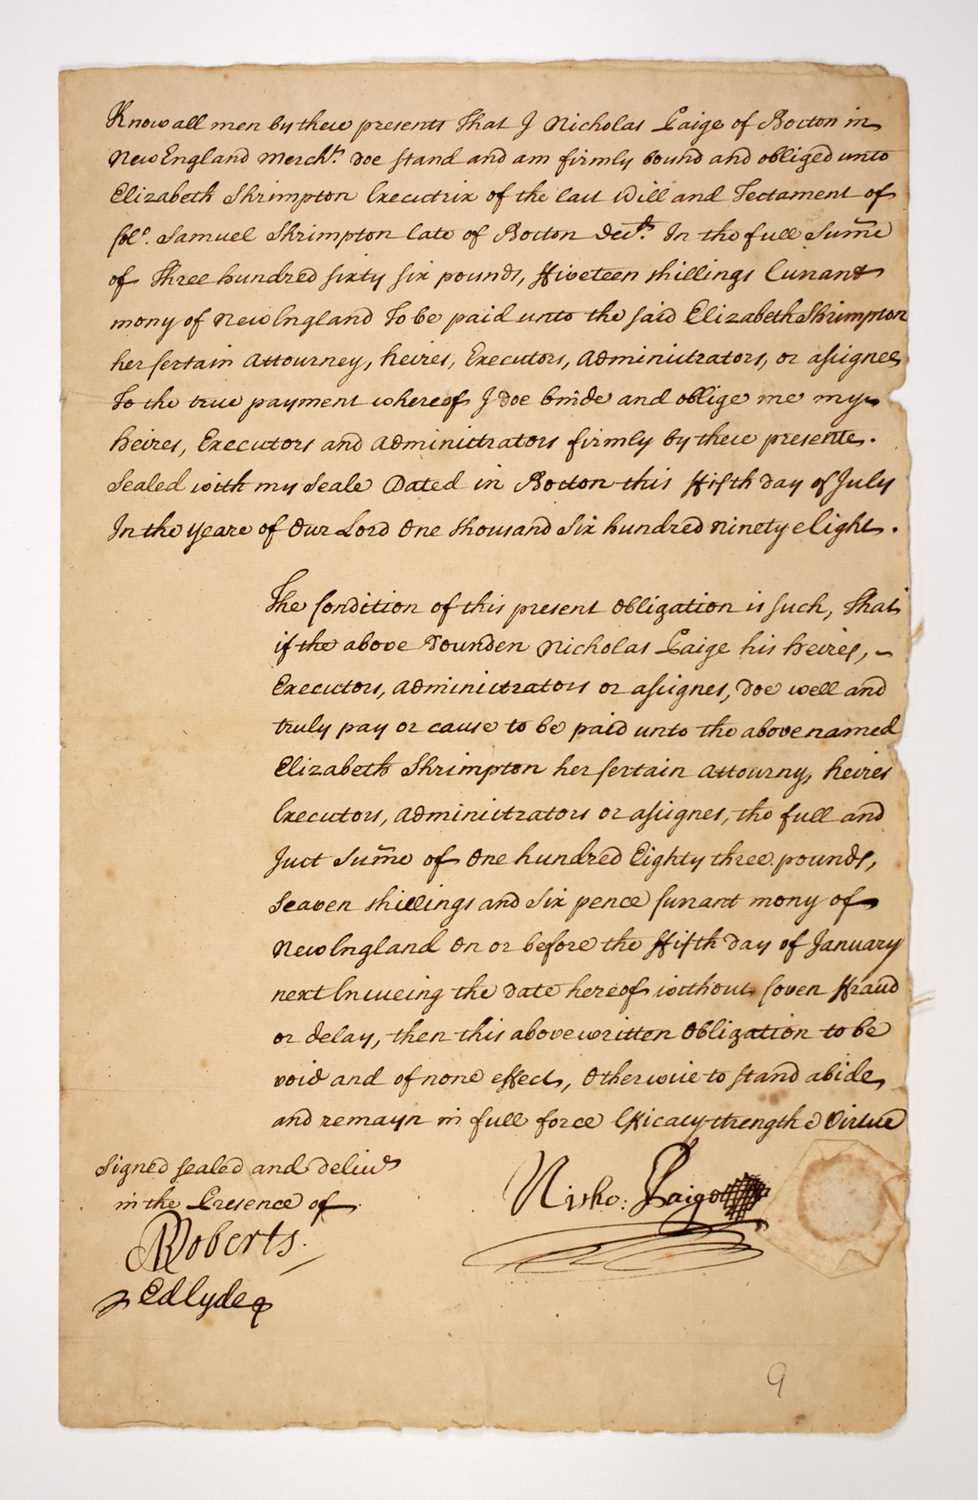 Know all men by these presents That I Nicholas Paige of Boston in
New England Mercht. Doe stand and am firmly bound and obliged unto
Elizabeth Shrimpton Executrix of the last Will and Testament of
Coll. Samuel Shrimpton late of Boston Decd. In the full Sume
of Three hundred sixty six pounds, ffiveteen shillings Currant
mony of New England To be paid unto the said Elizabeth Shrimpton
her Certain Attourney, heires, Executors, Administrators, or assignes
To the true payment whereof I doe binde and oblige me my
heires, Executors and Administrators firmly by these presents.
Sealed with my Seale Dated in Boston this ffifth Day of July
In the yeare of Our Lord One thousand Six hundred Ninety Eight.
The Condition of this present Obligation is such, That
if the above Bounden Nicholas Paige his heires,
Executors, Administrators or assignes, Doe well and
truly pay or cause to be paid unto the above named
Elizabeth Shrimpton her Certain Attourny, heires
Executors, Administrators or assignes, the full and
Just Sume of One hundred Eighty three pounds,
Seaven shillings and Six pence Currant mony of
New England On or before the ffifth Day of January
next Ensueing the Date hereof without Coven ffraud
or delay, then this above written Obligation to be
void and of none effect, Otherwise to stand abide,
and remayn in full force Efficacy strength & Virtue
Signed sealed and delivd
in the Presence of
Nicho: Paige
Roberts.
Ed Lyde
9